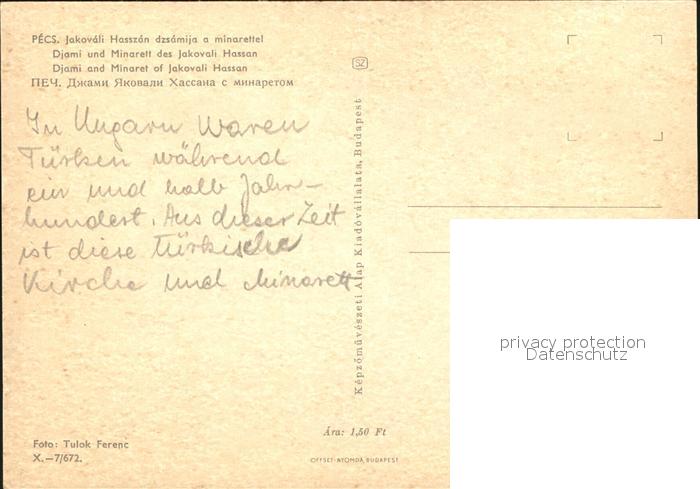 PÉCS. Jakováli Hasszán dzsámija a minarettel
Djami und Minarett des Jakovali Hassan
Djami and Minaret of Jakovali Hassan
ПЕЧ. Джами Яковали Хассана с минаретом
In Ungarn waren
Türken während
ein und halb Jahr-
hundert. Aus dieser Zeit
ist diese Türkische
Kirche und Minarett
Foto: Tulok Ferenc
X.—7/672.
SZ
Képzőművészeti Alap Kiadóvállalata, Budapest
Ára: 1,50 Ft
OFFSET-NYOMDA, BUDAPEST
privacy protection
Datenschutz